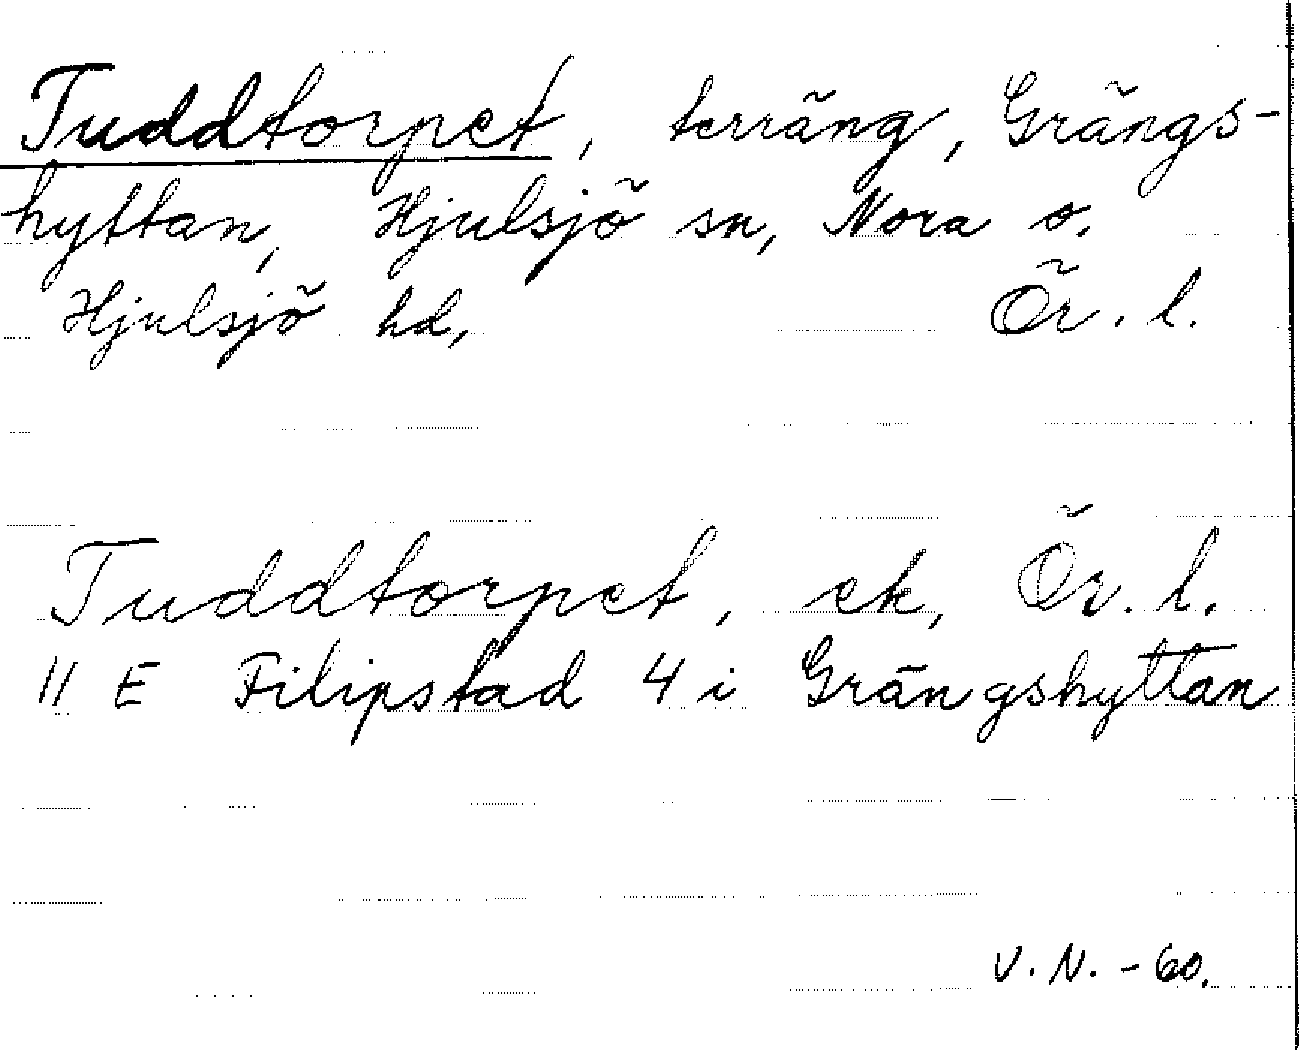 Tuddtorpet, terräng, Grängs-
hyttan, Hjulsjö sn, Nora o.
Hjulsjö hd, Ör. l.
Tuddtorpet, ek, Ör. l.
11 E Filipstad 4 i Grängshyttan
V. N. - 60.